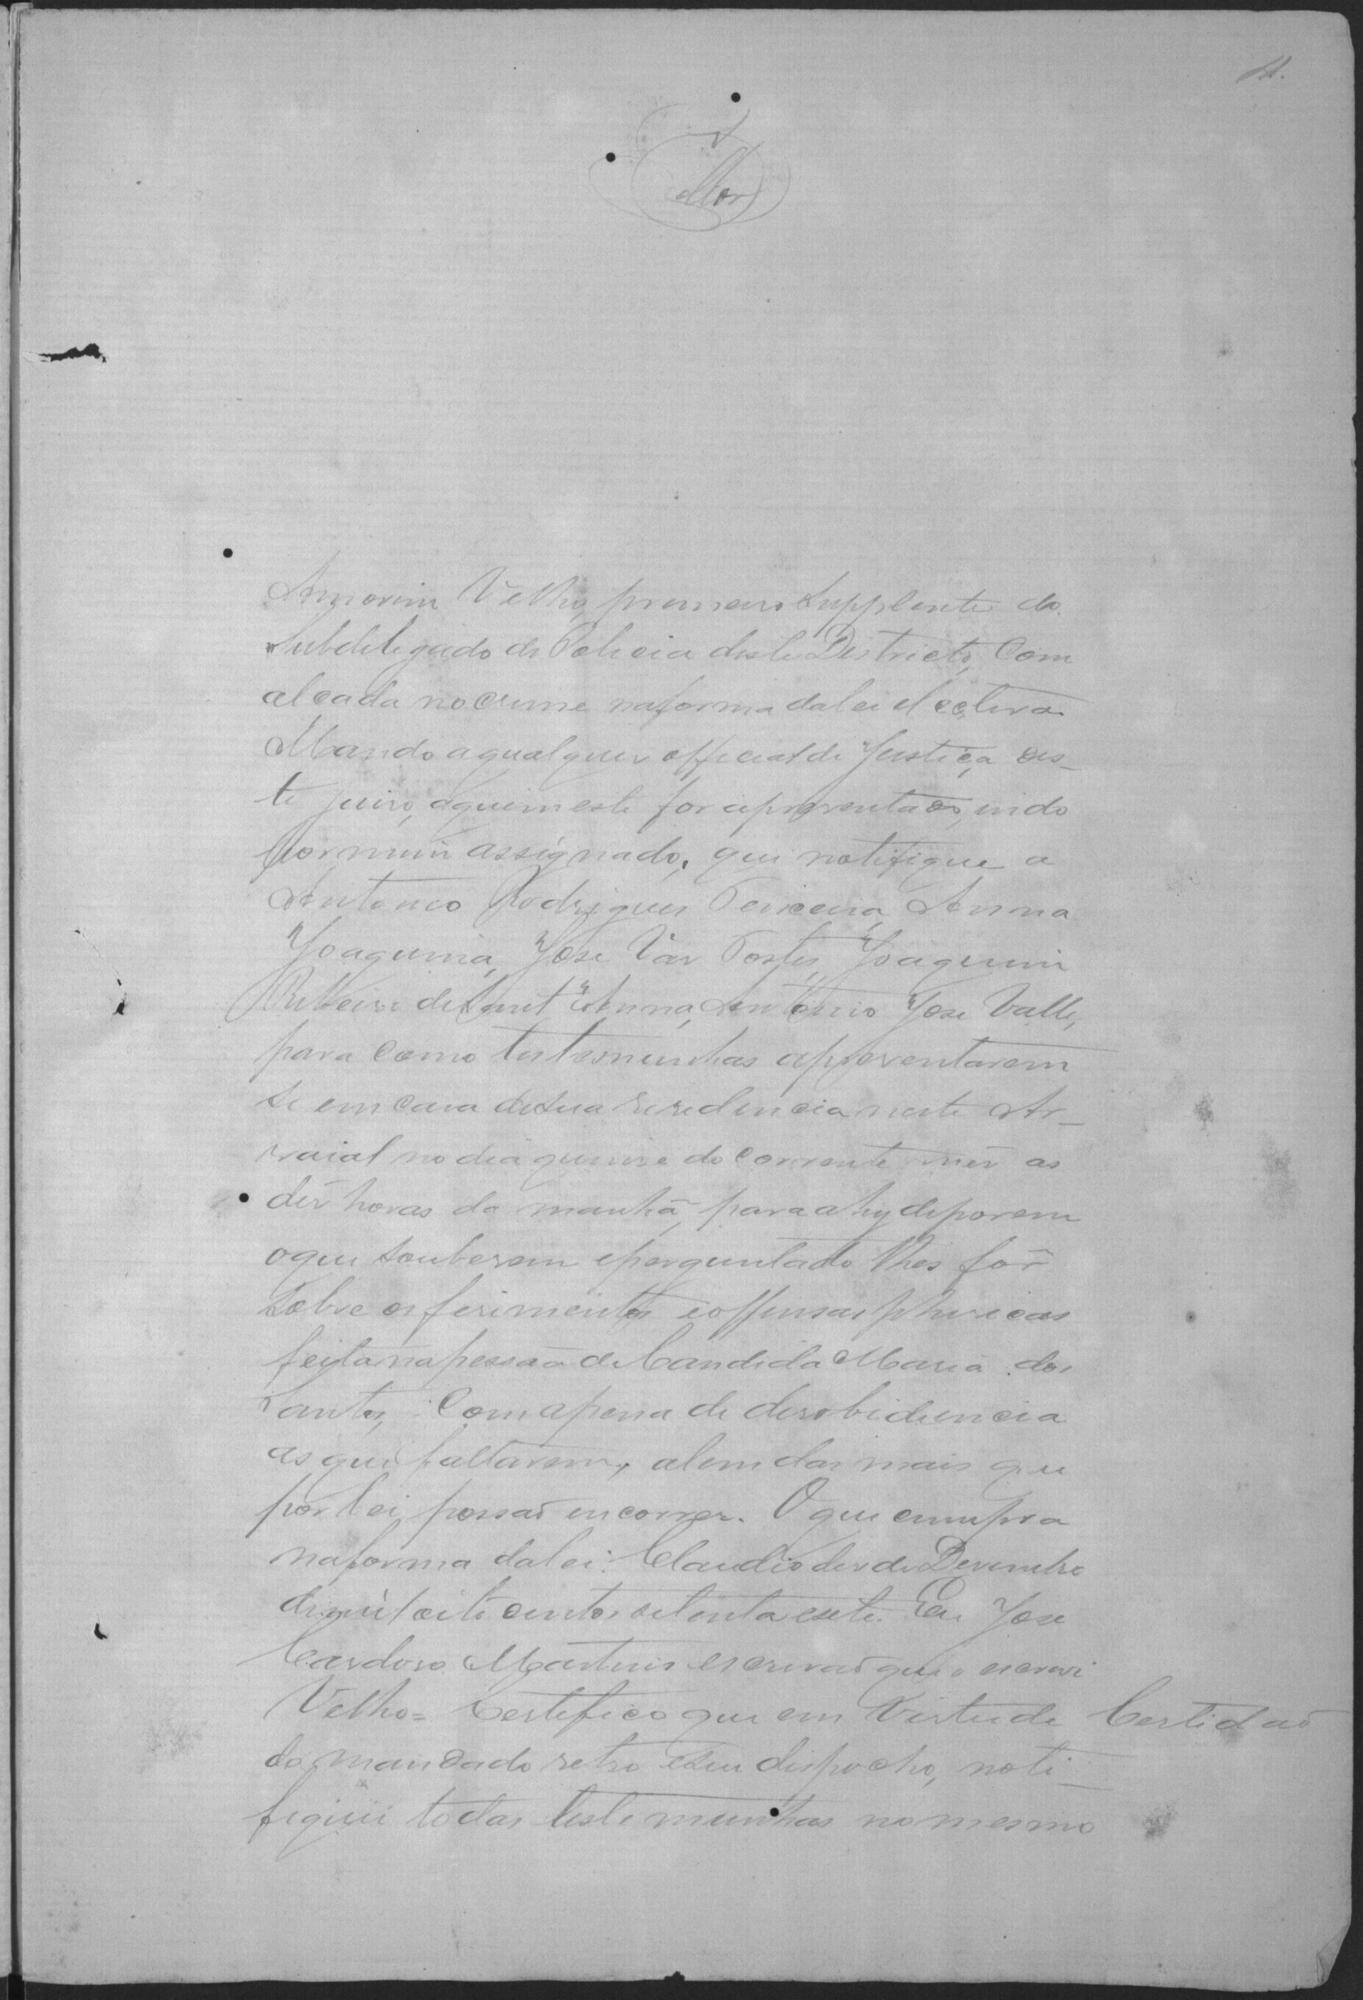 Amorim Velho, primeiro Supplente do
Subdelegado de Policia deste Districto, Com
alcada no crime na forma da lei electiva
Mando a qualquer official de Justiça des-
te juiso, aquem este for apresentado, indo
por mim assignado, que notifique a
Antonio Rodrigues Teixeira, Anna
Joaquina, José Vas Postes, Joaquim
Ribeiro de Sant'Anna, Antonio José Valle,
para como testemunhas apresentarem
se em casa de sua residencia neste Ar-
raial no dia quinse do corrente mês as
dés horas da manhã, para ahy deporem
o que souberem e perguntado lhes for
sobre os ferimentos e offensas phisicas
feita na pessoa de Candida Maria dos
Santos, Com a pena de desobidiencia
as que faltarem, alem das mais que
por lei possaõ encorrer. O que cumpra
na forma da lei. Claudio des de Desembro
de mil oito centos setenta e sete. Eu José
Cardoso Martins escrivaõ que o escrevi
Velho= Certifico que em Virtude Certidaõ
do mandado retro e seu despacho, noti-
fiquei todas testemunhas no mesmo